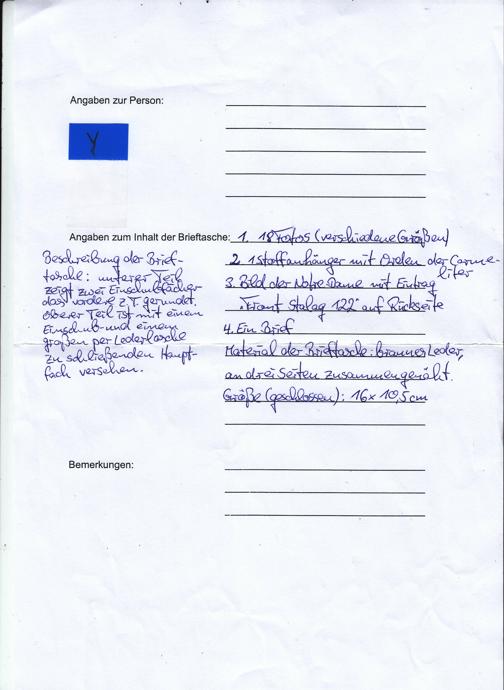 Angaben zur Person:
Y
Angaben zum Inhalt der Brieftasche: 1. 18 Fotos (verschiedene Größen)
2. 1 Stoffanhänger mit Orden der Carme-
liter
3. Bild der Notre Dame mit Eintrag
"Front Stalag 122" auf Rückseite
4. Ein Brief
Material der Brieftasche: braunes Leder,
an drei Seiten zusammengenäht.
Größe (geschlossen): 16 x 10,5 cm
Beschreibung der Brief-
tasche: unterer Teil
zeigt zwei Einschubfächer
das vordere z.T. gerundet.
oberer Teil ist mit einem
Einschub- und einem
großen per Lederlasche
zu schließenden Haupt-
fach versehen.
Bemerkungen: